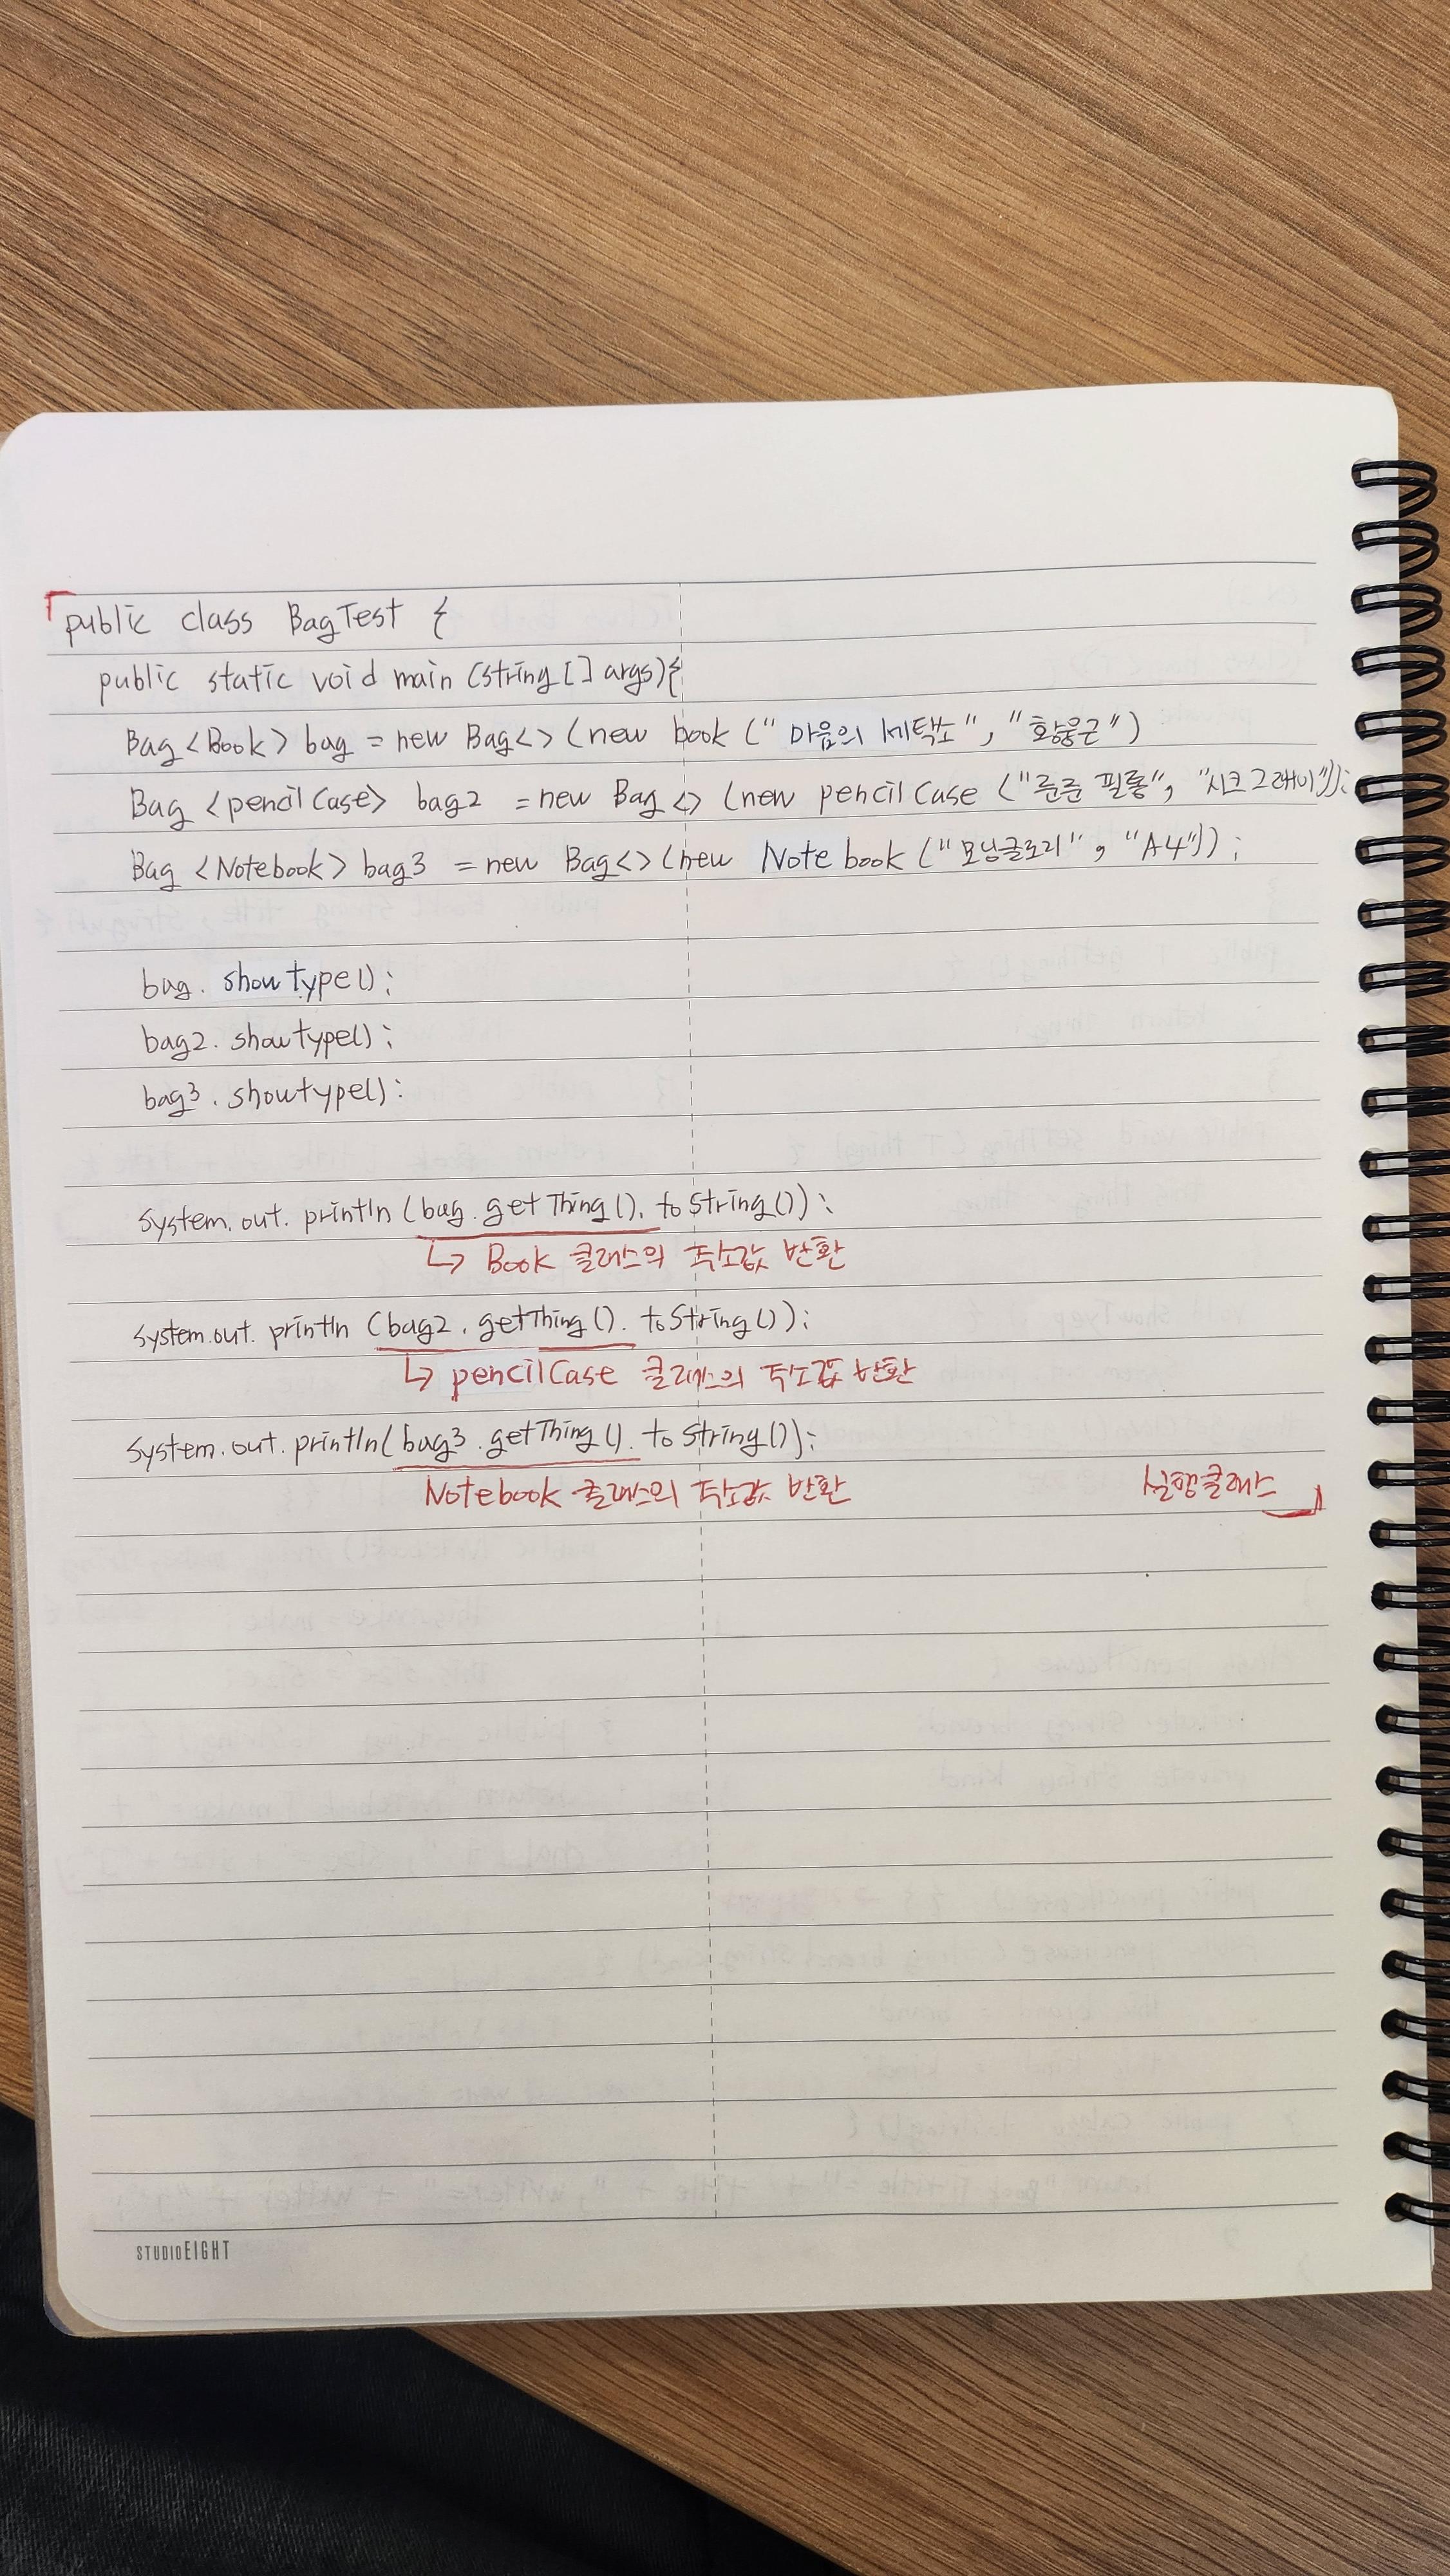 public class BagTest {
public static void main (string [] args){
Bag <Book> bag = new Bag<> (new book ("마음의 세탁소", "황웅근")
Bag <pencilCase> bag2 = new Bag <> (new pencilCase ("룬룬 필통", "시크그레이"));
Bag <Notebook> bag3 = new Bag<> (new Notebook ("모닝글로리", "A4"));
bag. showtype();
bag2. showtype();
bag3. showtype();
System.out. println (bag. getThing(). toString());
↳ Book 클래스의 주소값 반환
System.out. println (bag2. getThing(). toString());
↳ pencilCase 클래스의 주소값 반환
System.out. println( bag3. getThing(). toString());
Notebook 클래스의 주소값 반환
실행클래스
STUDIOEIGHT